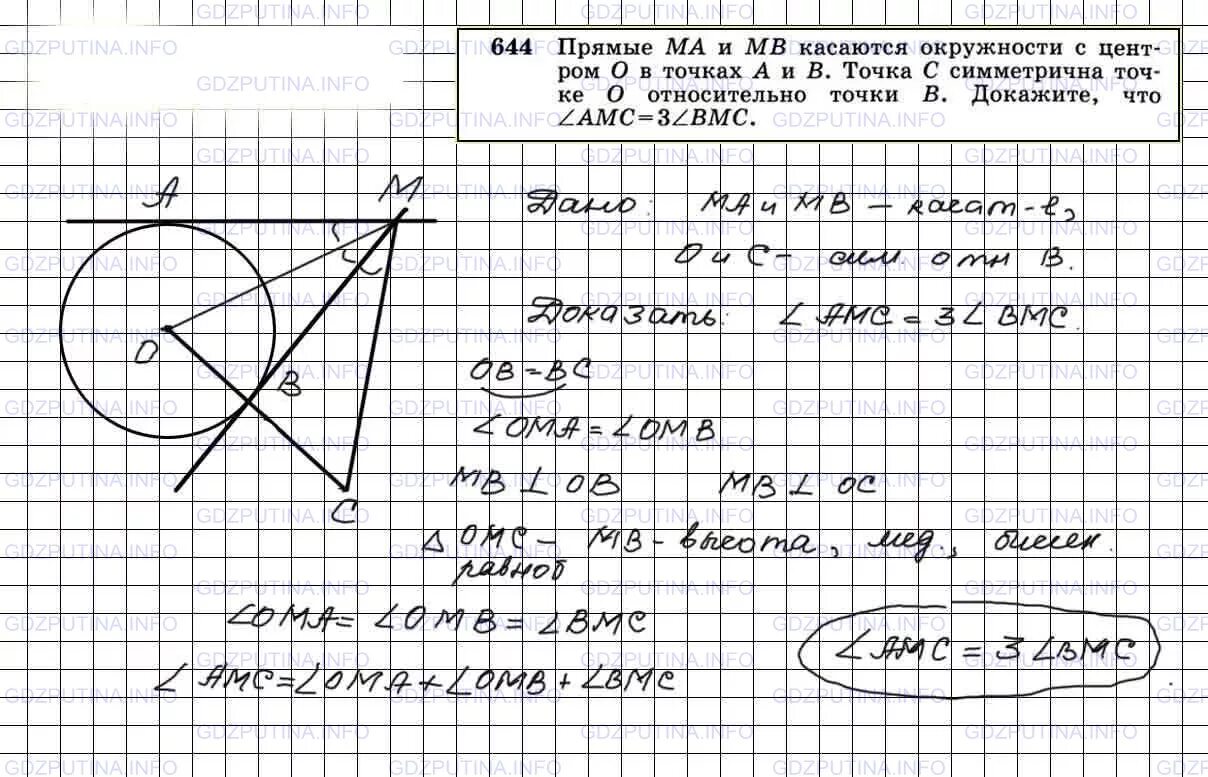 644 Прямые MA и MB касаются окружности с цент-
ром O в точках A и B. Точка C симметрична точ-
ке O относительно точки B. Докажите, что
∠AMC=3∠BMC.
A
M
O
B
C
Дано: MA и MB – касат-е,
O и C – сим. отн B.
Доказать: ∠AMC = 3∠BMC.
OB = BC
∠OMA = ∠OMB
MB ⊥ OB MB ⊥ OC
△ OMC – MB – высота, мед., биссек.
равноб
∠OMA = ∠OMB = ∠BMC
∠AMC = ∠OMA + ∠OMB + ∠BMC
∠AMC = 3∠BMC
GDZPUTINA.INFO